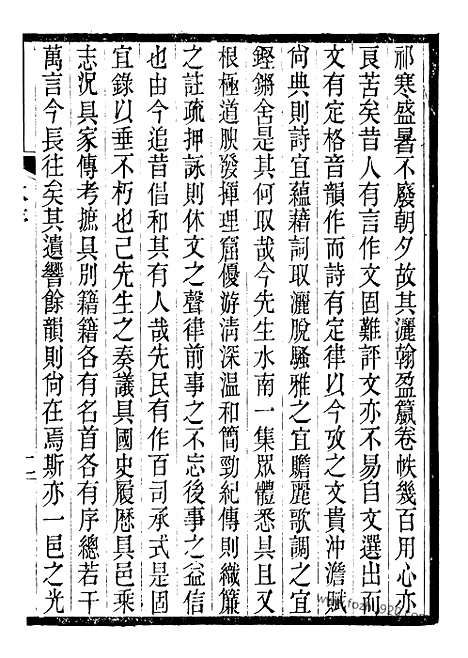 祁寒盛暑不廢朝夕故其灑翰盈籝卷帙幾百用心亦
良苦矣昔人有言作文固難評文亦不易自文選出而
文有定格音韻作而詩有定律以今攷之文貴沖澹賦
尚典則詩宜蘊藉詞取灑脫騷雅之宜贍麗歌調之宜
鏗鏘舍是其何取哉今先生水南一集眾體悉具且又
根極道腴發揮理窟優游清深溫和簡勁紀傳則織簾
之註疏押詠則休文之聲律前事之不忘後事之益信
也由今追昔倡和其有人哉先民有作百司承式是固
宜錄以垂不朽也己先生之奏議具國史履歷具邑乘
志況具家傳考摭具別籍籍各有名首各有序總若干
萬言今長往矣其遺響餘韻則尚在焉斯亦一邑之光